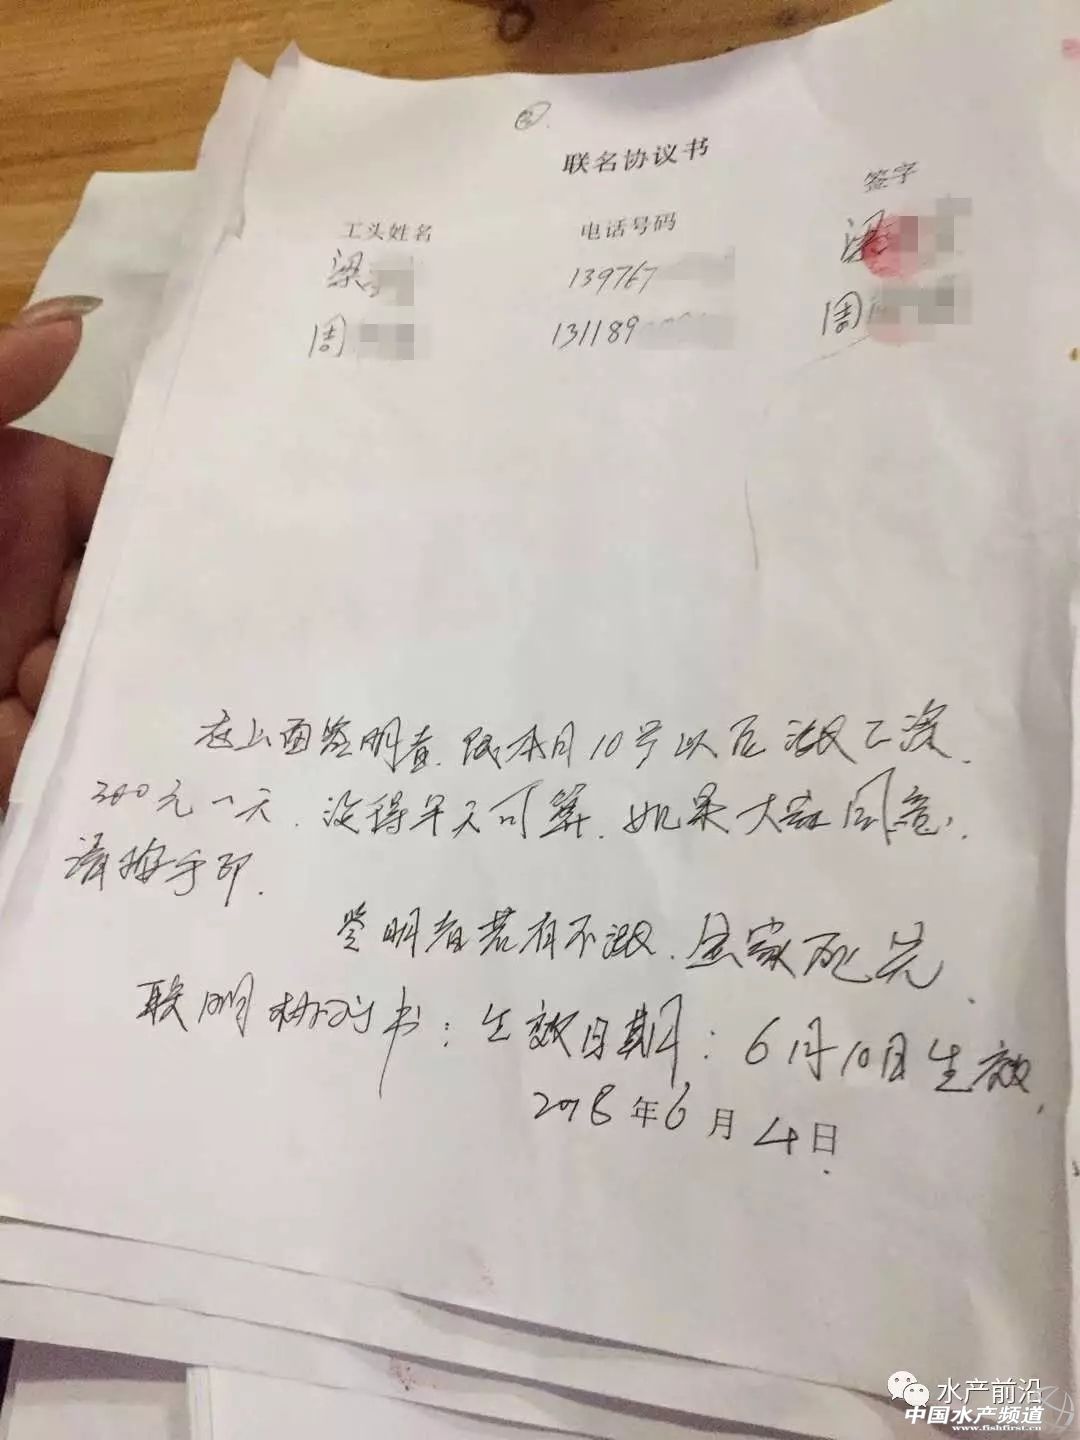 ②
联名协议书
工头姓名 电话号码 签字
梁 139767 梁
周 131189 周
在上面签明者. 本月10号以后 工资
300元一天. 没得半天可算. 如果大家同意.
请按手印.
签明者若有不 全家死光
联明协议书: 生效日期: 6月10日生效.
2018年6月4日
水产前沿
中国水产频道
www.fishfirst.cn